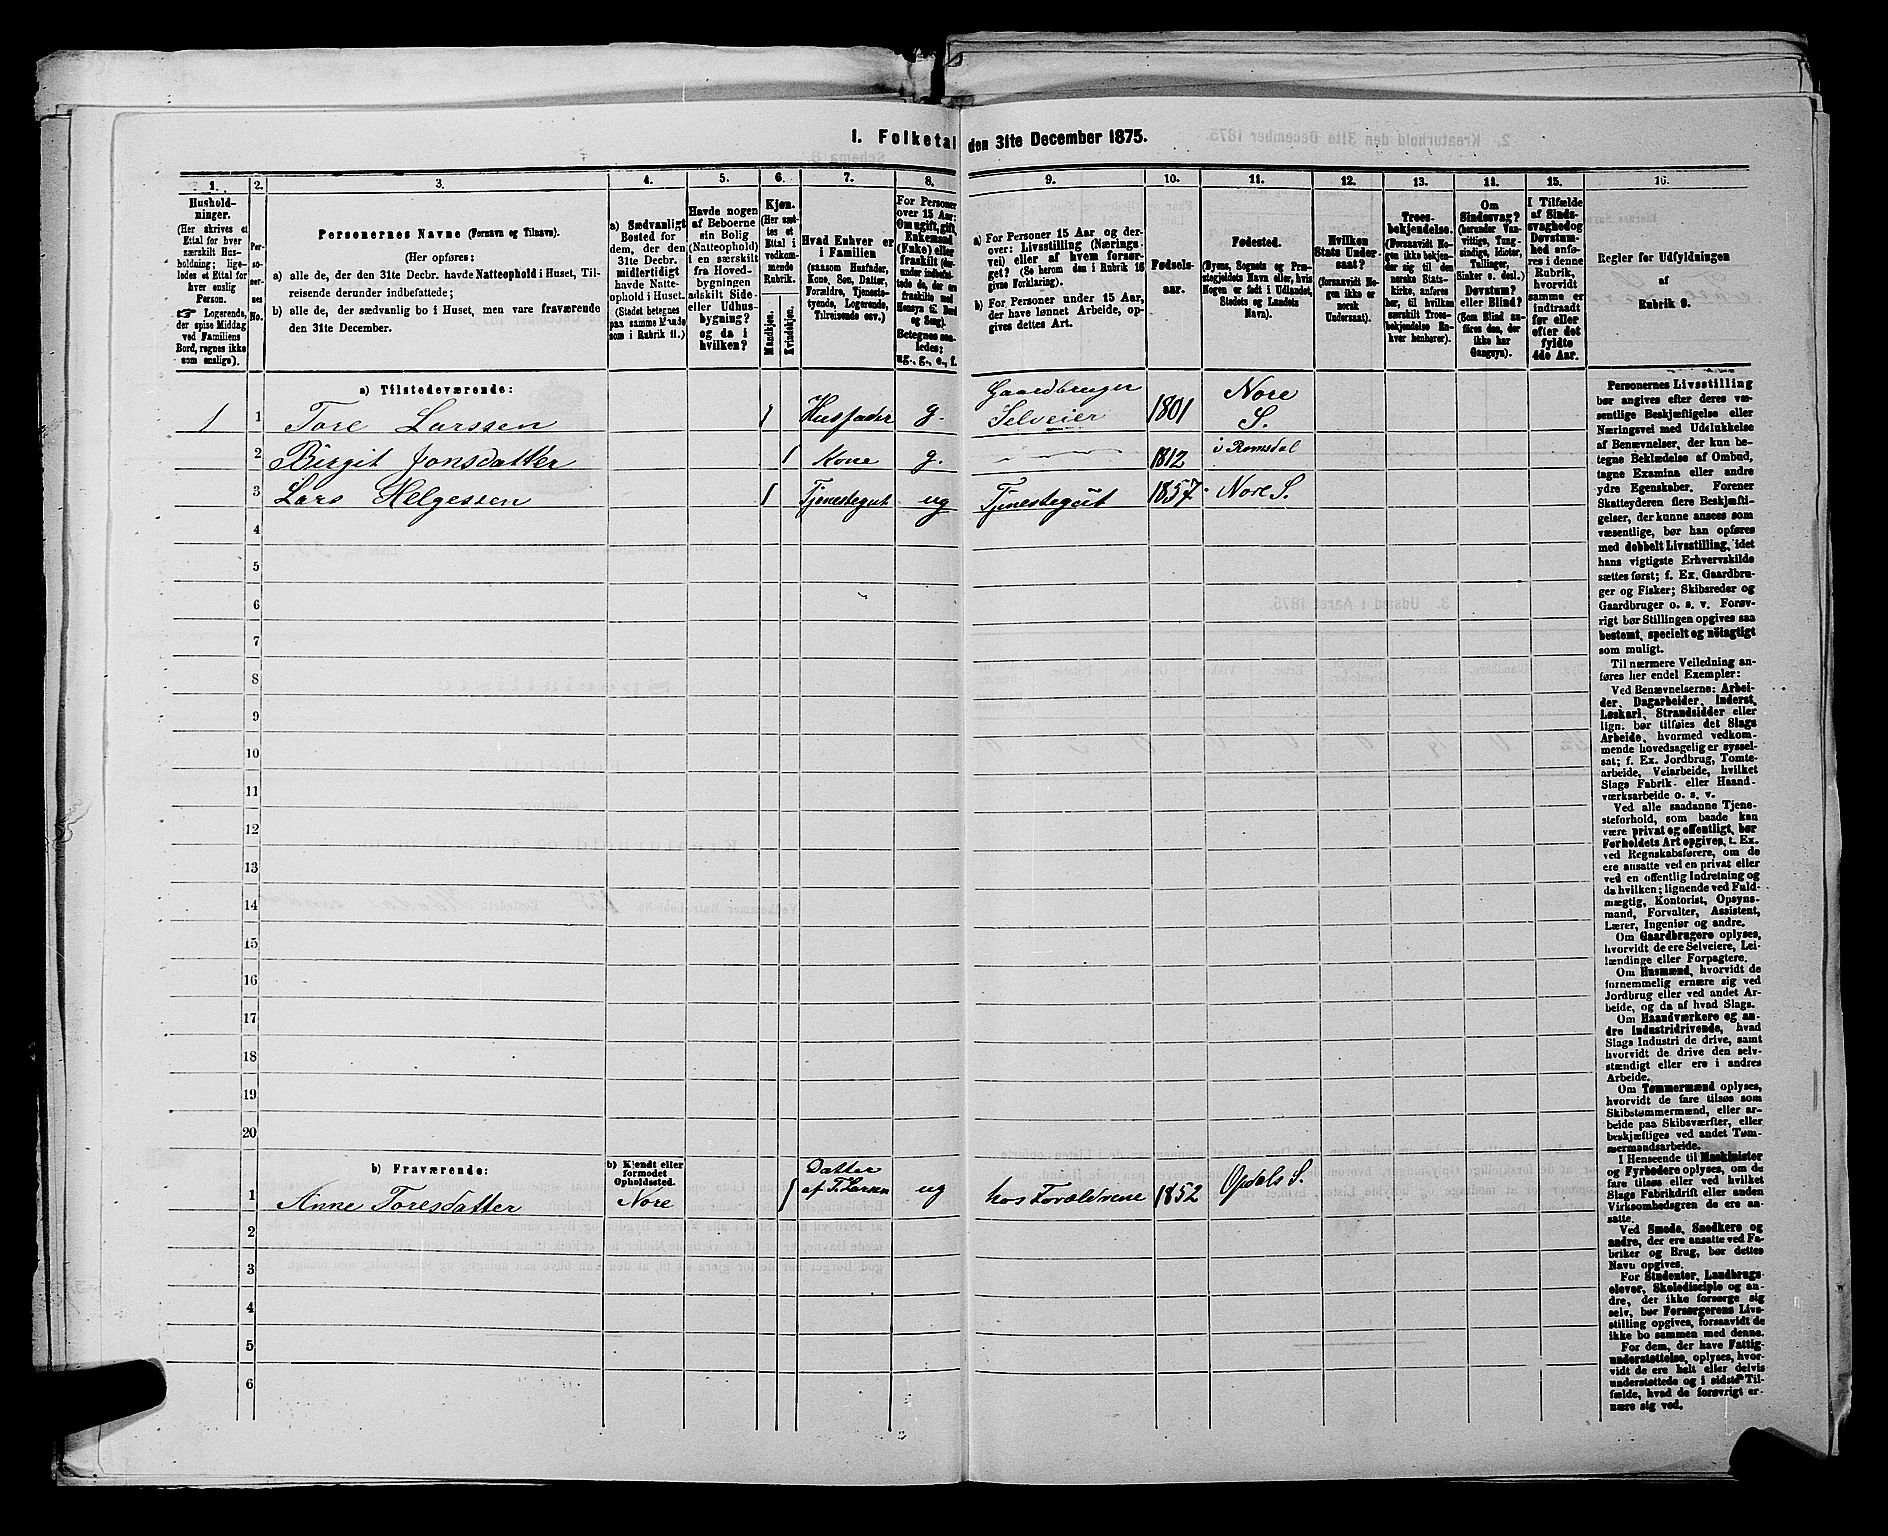 1. Folketal den 31te December 1875.
1.
2.
3.
4.
5.
6.
7.
8.
9.
10.
11.
12.
13.
14.
15.
16.
Hushold-
ninger.
(Her skrives et
Ettal for hver
særskilt Hus-
holdning; lige-
ledes et Ettal for
hver enslig
Person.
☞ Logerende,
der spise Middag
ved Familiens
Bord, regnes ikke
som enslige).
Per-
so-
ner-
nes
No.
Personernes Navne (Fornavn og Tilnavn).
(Her opføres:
a) alle de, der den 31te Decbr. havde Natteophold i Huset, Til-
reisende derunder indbefattede;
b) alle de, der sædvanlig bo i Huset, men vare fraværende
den 31te December.
a) Sædvanligt
Bosted for
dem, der den
31te Decbr.
midlertidigt
havde Natte-
ophold i Huset.
(Stedet betegnes
paa samme Maade
som i Rubrik 11.)
Havde nogen
af Beboerne
sin Bolig
(Natteophold)
i en særskilt
fra Hoved-
bygningen
adskilt Side-
eller Udhus-
bygning?
og da i
hvilken?
Kjøn.
(Her sæt-
tes et
Ettal i
vedkom-
mende
Rubrik.
Mandkjøn.
Kvindekjøn.
Hvad Enhver er
i Familien
(saasom Husfader,
Kone, Søn, Datter,
Forældre, Tjeneste-
tyende, Logerende,
Tilreisende osv.)
For Personer
over 15 Aar:
Om ugift, gift,
Enkemand
(Enke) eller
fraskilt
ug., g., e., f.
a) For Personer 15 Aar og der-
over: Livsstilling (Nærings-
vei) eller af hvem forsør-
get? (Se herom den i Rubrik 16
givne Forklaring).
b) For Personer under 15 Aar,
der have lønnet Arbeide, op-
gives dettes Art.
Fødsels-
aar.
Fødested.
(Byens, Sognets og Præ-
stegjeldets Navn eller, hvis
Nogen er født i Udlandet,
Stedets og Landets
Navn).
Hvilken
Stats Under-
saat?
(foraavidt No-
gen ikke er
norsk
Undersaat).
Troes-
bekjendelse.
(Forsaavidt No-
gen ikke bekjen-
der sig til den
norske Stats-
kirke, anføres
her, til hvilken
særskilt Troes-
bekjendelse En-
hver henhører).
Om
Sindssvag?
(herunder Van-
vittige, Tung-
sindige, Idioter,
Tullinger,
Sinker o. desl.)
Døvstum?
eller Blind?
(Som Blind an-
føres den, der
ikke har
Gangsyn).
I Tilfælde
af Sinds-
svaghed og
Døvstum-
hed anfø-
res i denne
Rubrik,
hvorvidt
samme er
indtraadt
før eller
efter det
fyldte
4de Aar.
Regler for Udfyldningen
af
Rubrik 9.
a) Tilstedeværende:
1 1 Tore Larssen 1 Husfader g. Gaardbruger Selveier 1801 Nore S.
2 Birgit Jonsdatter 1 Kone g. 1812 i Romsdal
3 Lars Helgessen 1 Tjenestegut ug Tjenestegut 1857. Nore S.
4
5
6
7
8
9
10
11
12
13
14
15
16
17
18
19
20
b) Fraværende:
b) Kjendt eller
formodet
Opholdssted.
1 Anne Toresdatter Nore 1 Datter af T. Larsen ug hos Forældrene 1852 Opdals S.
2
3
4
5
6
Personernes Livsstilling
bør angives efter deres væ-
sentlige Beskjæftigelse eller
Næringsvei med Udelukkelse
af Benævnelser, der kun be-
tegne Beklædelse af Ombud,
tagne Examina eller andre
ydre Egenskaber. Forener
Skatteyderen flere Beskjæfti-
gelser, der kunne ansees som
væsentlige, bør han opføres
med dobbelt Livsstilling, idet
hans vigtigste Erhvervskilde
sættes først; f. Ex. Gaardbru-
ger og Fisker; Skibsreder og
Gaardbruger o. s. v. Forøv-
rigt bør Stillingen opgives saa
bestemt, specielt og nöiagtigt
som muligt.
Til nærmere Veiledning an-
føres her endel Exempler:
Ved Benævnelserne: Arbei-
der, Dagarbeider, Inderst,
Løskarl, Strandsidder eller
lign. bør tilføies det Slags
Arbeide, hvormed vedkom-
mende hovedsagelig er syssel-
sat; f. Ex. Jordbrug, Tomte-
arbeide, Veiarbeide, hvilket
Slags Fabrik- eller Haand-
værksarbeide o. s. v.
Ved alle saadanne Tjene-
steforhold, som baade kan
være privat og offentligt, bør
Forholdets Art opgives, t. Ex.
ved Regnskabsførere, om de
ere ansatte ved en privat eller
ved en offentlig Indretning og
da hvilken; lignende ved Fuld-
mægtig, Kontorist, Opsyns-
mand, Forvalter, Assistent,
Lærer, Ingeniør og andre.
Om Gaardbrugere oplyses,
hvorvidt de ere Selveiere, Lei-
lændinge eller Forpagtere.
Om Husmænd, hvorvidt de
fornemmelig ernære sig ved
Jordbrug eller ved andet Ar-
beide, og da af hvad Slags.
Om Haandværkere og an-
dre Industridrivende, hvad
Slags Industri de drive, samt
hvorvidt de drive den selv-
stændigt eller ere i andres
Arbeide.
Om Tømmermænd oplyses,
hvorvidt de fare tilsøs som
Skibstømmermænd, eller ar-
beide paa Skibsværfter, eller
beskjæftiges ved andet Tøm-
mermandsarbeide.
I Henseende til Maskinister
og Fyrbødere oplyses, om de
fare tilsøs eller ved hvilket
Slags Fabrikdrift eller anden
Virksomhedsgren de ere an-
satte.
Ved Smede, Snedkere og
andre, der ere ansatte ved Fa-
briker og Brug, bør dettes
Navn opgives.
For Studenter, Landbrugs-
elever, Skoledisciple og an-
dre, der ikke forsørge sig
selv, bør Forsørgerens Livs-
stilling opgives, forsaavidt de
ikke bo sammen med denne.
For dem, der have Fattig-
understøttelse, oplyses, hvor-
vidt de ere helt eller delvis
understøttede og i sidste Til-
fælde, hvad de forøvrigt er-
nære sig ved.